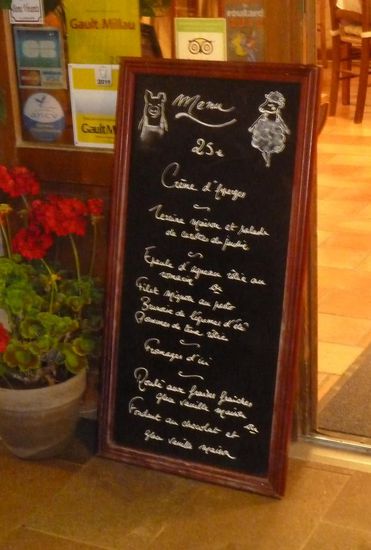 routard
Gault&Millau
ancv
2014
Gault&Millau
Menu
25€
Crème d'Asperges
Terrine maison et salade
de carottes du jardin
Epaule d'agneau rôtie au
romarin
Filet mignon au pesto
Brunoise de légumes d'été
Pommes de terre rôties
Fromages d'ici
Roulé aux fraises fraîches
glace vanille maison
Fondant au chocolat et
glace vanille maison